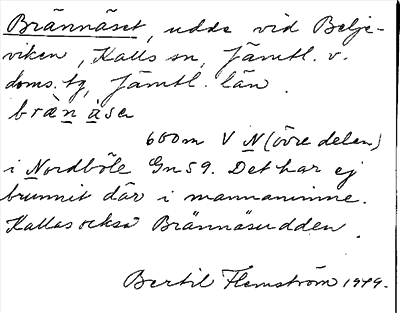 Brännäset, udde vid Bölje-
viken, Kalls sn, Jämtl. v.
doms. tg, Jämtl. län.
bræ̀n ä̀sa
600m V N (övre delen)
i Nordböle Gn 59. Det har ej
brunnit där i mannaminne.
Kallas också Brännäsudden.
Bertil Flemström 1979.